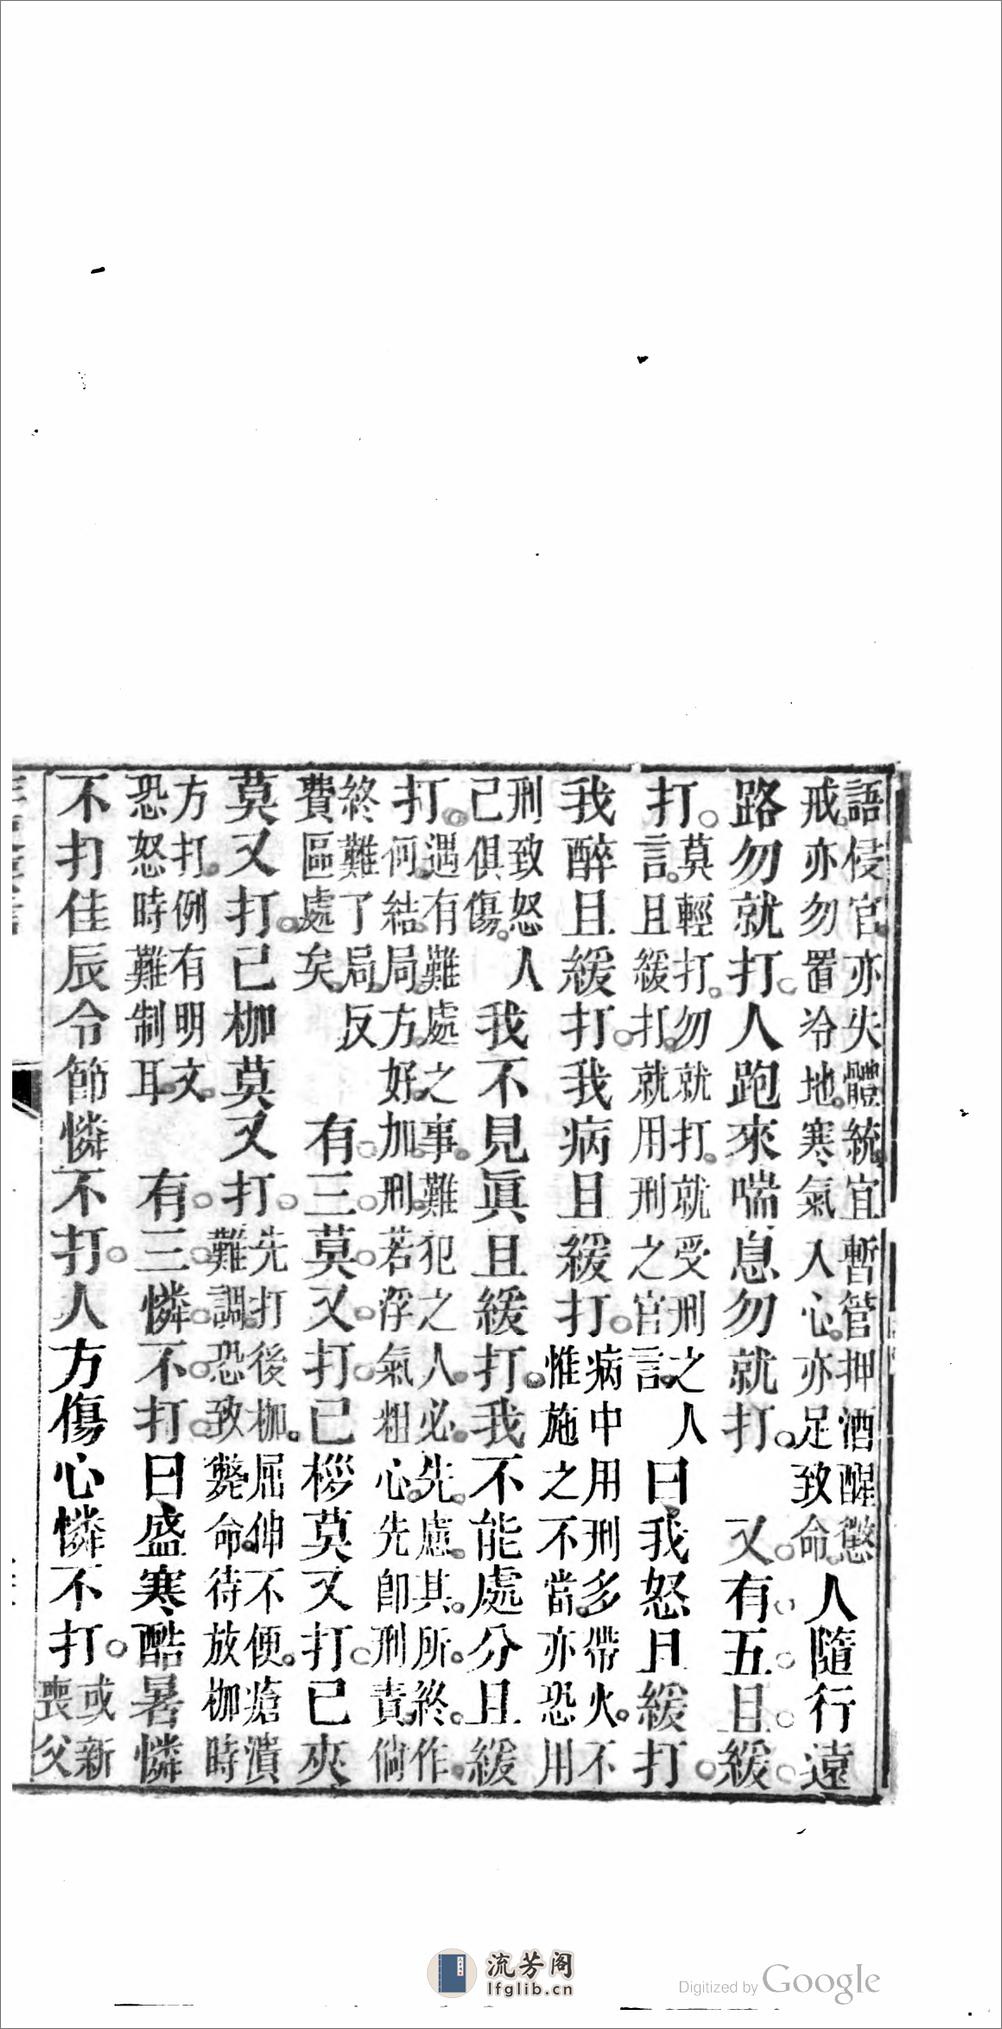 語侵官亦失體統宜暫管押酒醒懲
戒亦勿置冷地寒氣入心亦足致命
人隨行遠
路勿就打人跑來喘息勿就打 又有五且緩
打
莫輕打勿就打就受刑之人
言且緩打就用刑之官言
曰我怒且緩打
我醉且緩打我病且緩打
病中用刑多帶火不
惟施之不當亦恐用
刑致怒人
己俱傷
我不見眞且緩打我不能處分且緩
打
遇有難處之事難犯之人必先慮其所終作
何結局方好加刑若浮氣粗心先卽刑責倘
終難了局反
費區處矣
有三莫又打已桚莫又打已夾
莫又打已枷莫又打
先打後枷屈伸不便瘡潰
難調恐致斃命待放枷時
方打例有明文
恐怒時難制耳
有三憐不打曰盛寒酷暑憐
不打佳辰令節憐不打人方傷心憐不打
或新
喪父
流芳阁
lfglib.cn
Digitized by Google